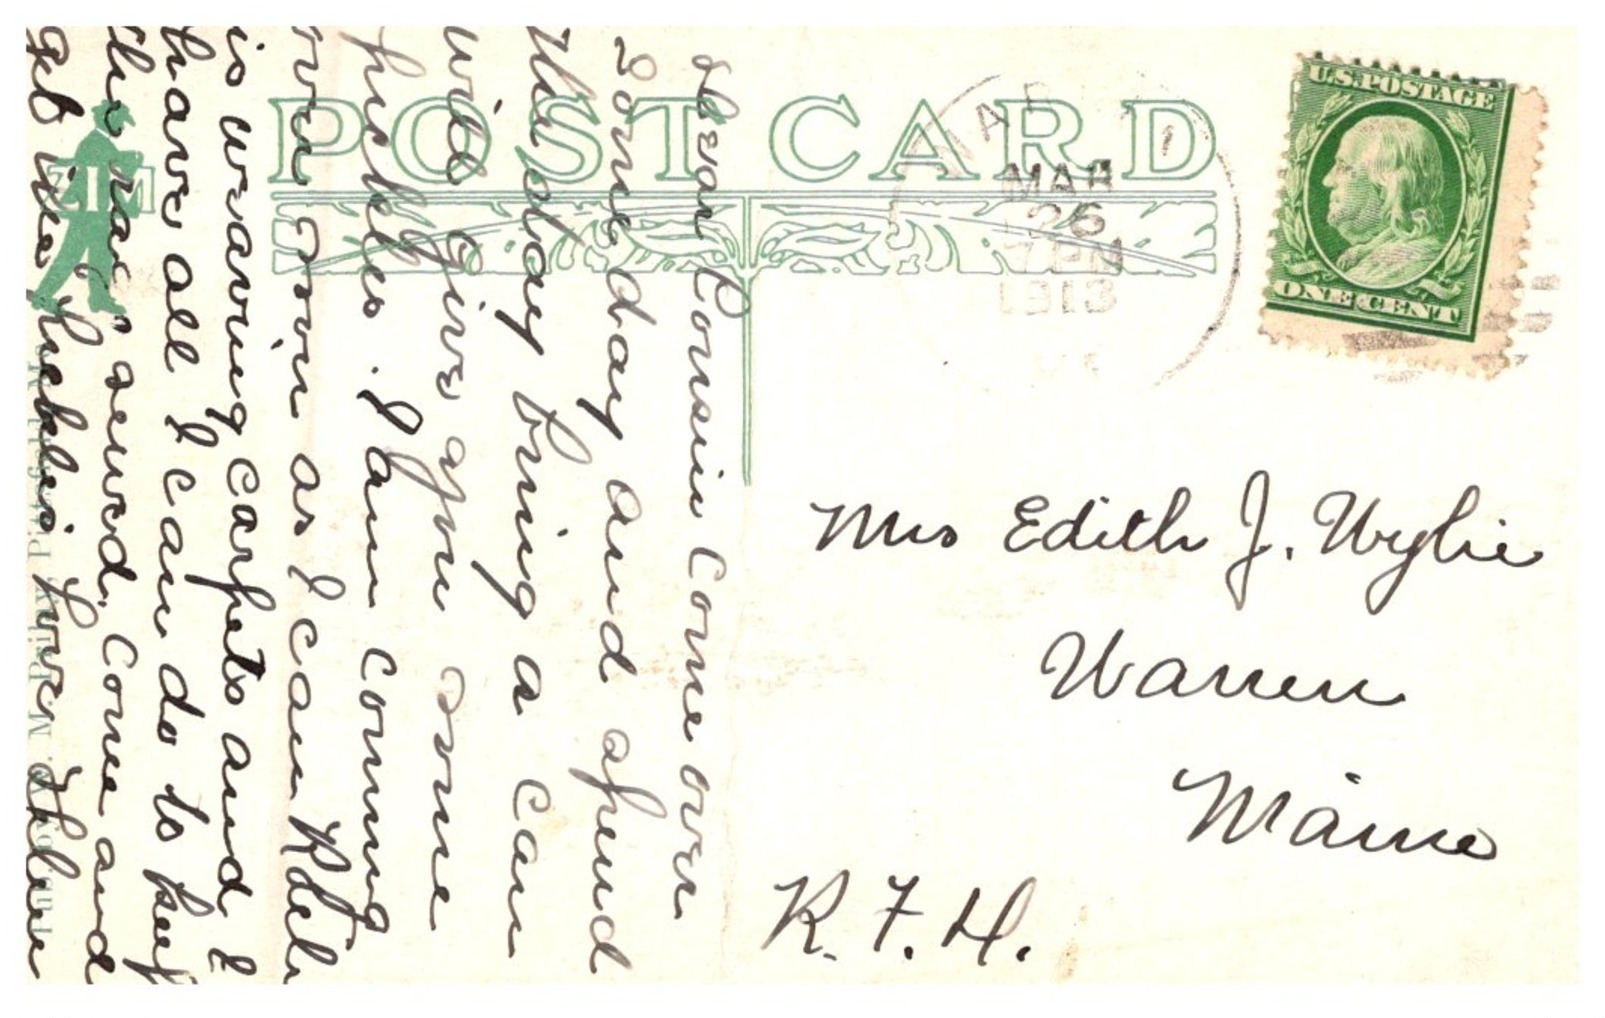 POST CARD
ZIM
U.S. POSTAGE
ONE CENT
MAR
26
7 PM
1913
Dear Cousin Come over
Some day and spend
the day bring a can
will give you some
pickles. I am coming
over soon as I can Ruth
is weaving carpets and I
have all I can do to keep
the rags sewed. Come and
get the pickles. Love
Mrs Edith J. Wylie
Warren
Maine
R. F. D.